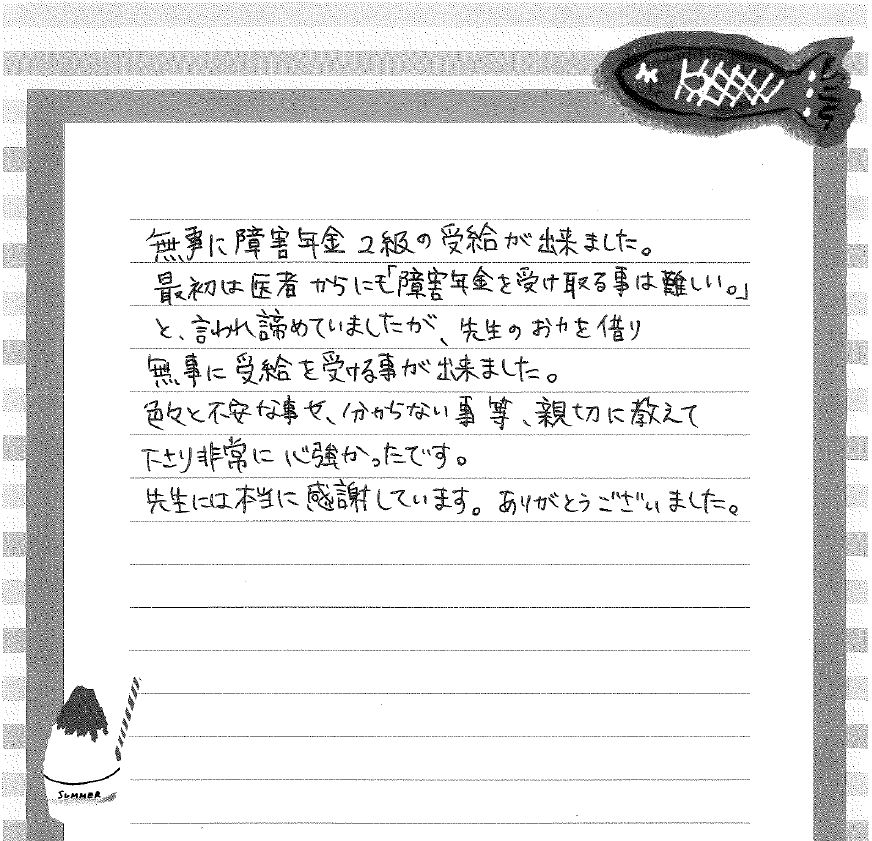 無事に障害年金2級の受給が出来ました。
最初は医者からにも「障害年金を受け取る事は難しい。」
と、言われ諦めていましたが、先生のお力を借り
無事に受給を受ける事が出来ました。
色々と不安な事や、分からない事等、親切に教えて
下さり非常に心強かったです。
先生には本当に感謝しています。ありがとうございました。
SUMMER